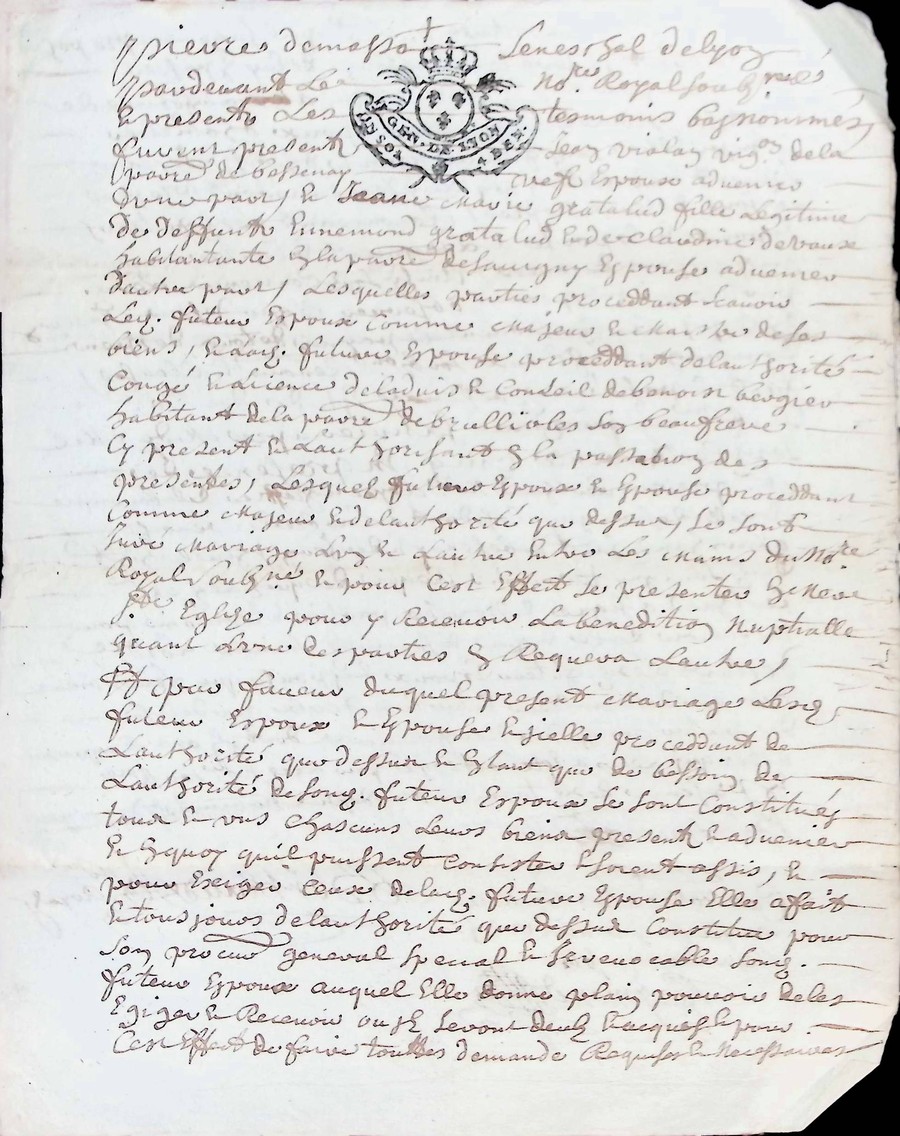 pierre demasso Seneschal delyon
pardevant Le No.re Royal soubz.né
Et presents Les tesmoins basnommes,
furent presents Jean vialay vig.on de la
parre de bessenay Veuf Espoux aduenir
GEN. DE LYON
UN SOL 4 DEN.
D'une part, Et Jeane Marie gratalud fille Legitime
De deffunt Ennemond gratalud Et de Claudine devaux
habitantante En la parre de Sauigny Espouse aduenir
d'autre part, Lesquelles parties proceddant scavoir
Led. futeur Espoux Comme Majeur Et Maistre de ses
biens, Et lad. future Espouse proceddant delauthorité
Congé Et Licence deladuis Et Conseil de benoist bergier
habitant de la parre de brullioles son beaufrere
Cy present Et Lauthorisant En la passation des
presentes, Lesquels futeur Espoux Et Espouse proceddant
Comme Majeur Et delauthorité que dessus, se sont
Juré Mariage Lun Et Lautre Entre Les Mains du No.re
Royal soubz.né Et pour Cest Effect se presenter En Nere
s.te Eglise pour y Recevoir La benedition Nuptialle
quant Lune des parties En Requera Lautre,
Et pour faueur duquel present Mariage Lesd.
futeur Espoux Et Espouse Et jcelle proceddant de
Lauthorité que dessus Et Entant que de bessoin de
Lauthorité de sond. futeur Espoux se sont Constitués
tous Et uns Chascuns Leurs biens presents Et aduenir
En Et quoy quil puissent Consister Et soient assis, Et
pour Exiger Ceux delad. future Espouse Elle a fait
Et tousjours delauthorité que dessus Constitue pour
Son procur general special Et Irrevocable sond.
futeur Espoux auquel Elle donne plain pouvoir de les
Exiger Et Recevoir ou Jls seront deubs Et acquis Et pour
Cest Effect de faire touttes demande Requises Et Necessaires